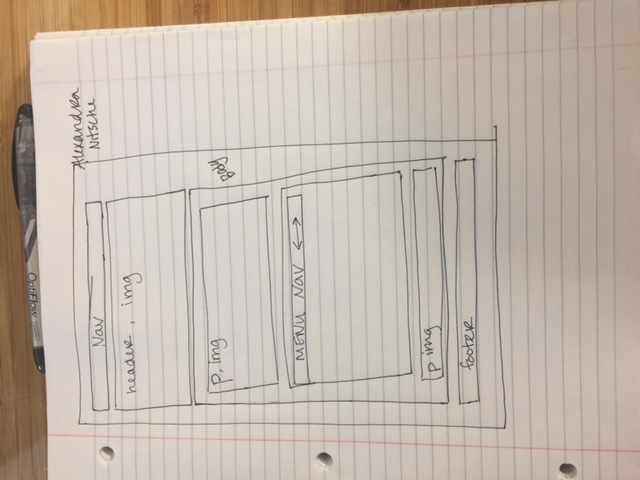 OptiFlow
Alexandra
Nitsche
Nav
header, img
p, img
Body
MENU NAV ↔
p img
footer